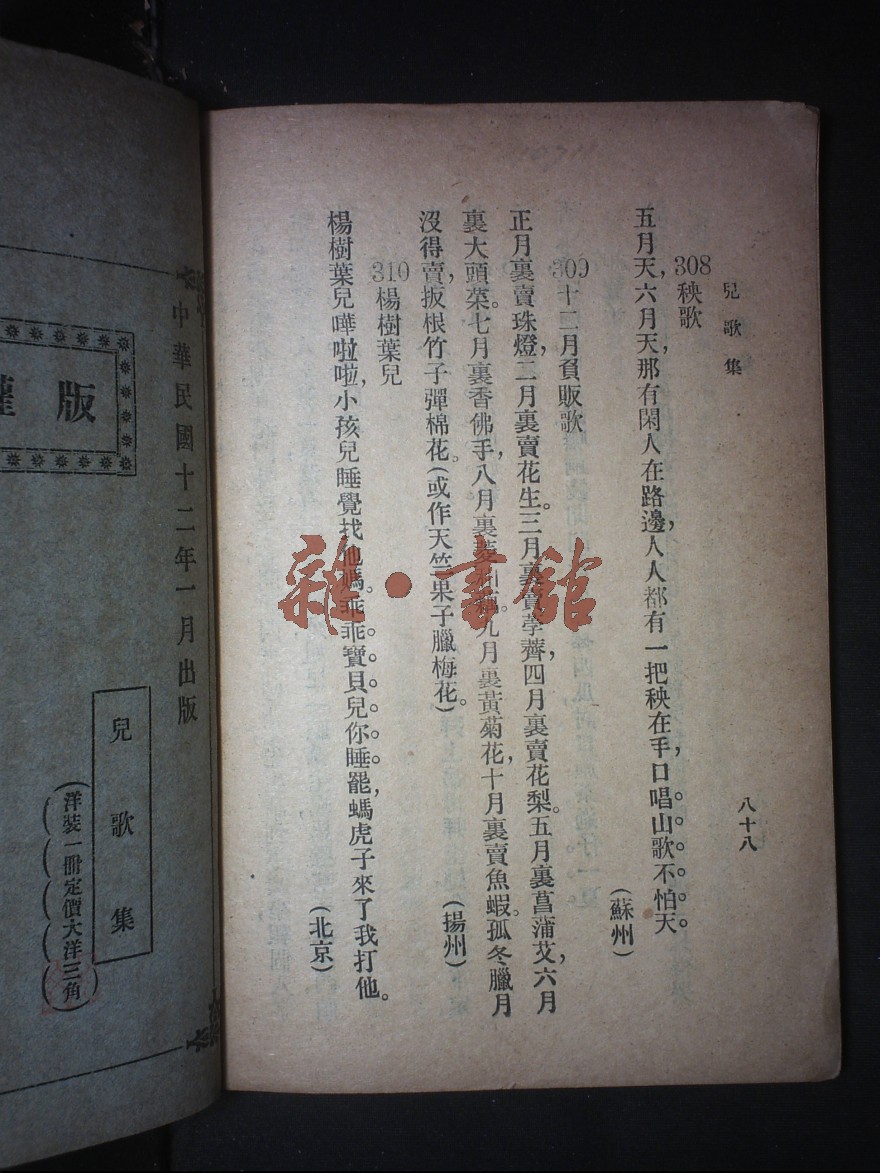 兒歌集
八十八
308秧歌
五月天，六月天那有閑人在路邊，人人都有一把秧在手，口唱山歌不怕天。
（蘇州）
309十二月負販歌
正月裏賣珠燈，二月裏賣花生。三月裏賣荸薺，四月裏賣花梨。五月裏菖蒲艾，六月
裏大頭菜。七月裏香佛手，八月裏菱藕。九月裏黃菊花，十月裏賣魚蝦。孤冬臘月
沒得賣，扳根竹子彈棉花。（或作天竺果子臘梅花。）
（揚州）
310楊樹葉兒
楊樹葉兒嘩啦啦，小孩兒睡覺找他媽。乖乖寶貝兒你睡罷，螞虎子來了我打他。
（北京）
雜·書館
中華民國十二年一月出版
兒歌集
（洋裝一冊定價大洋三角）
版